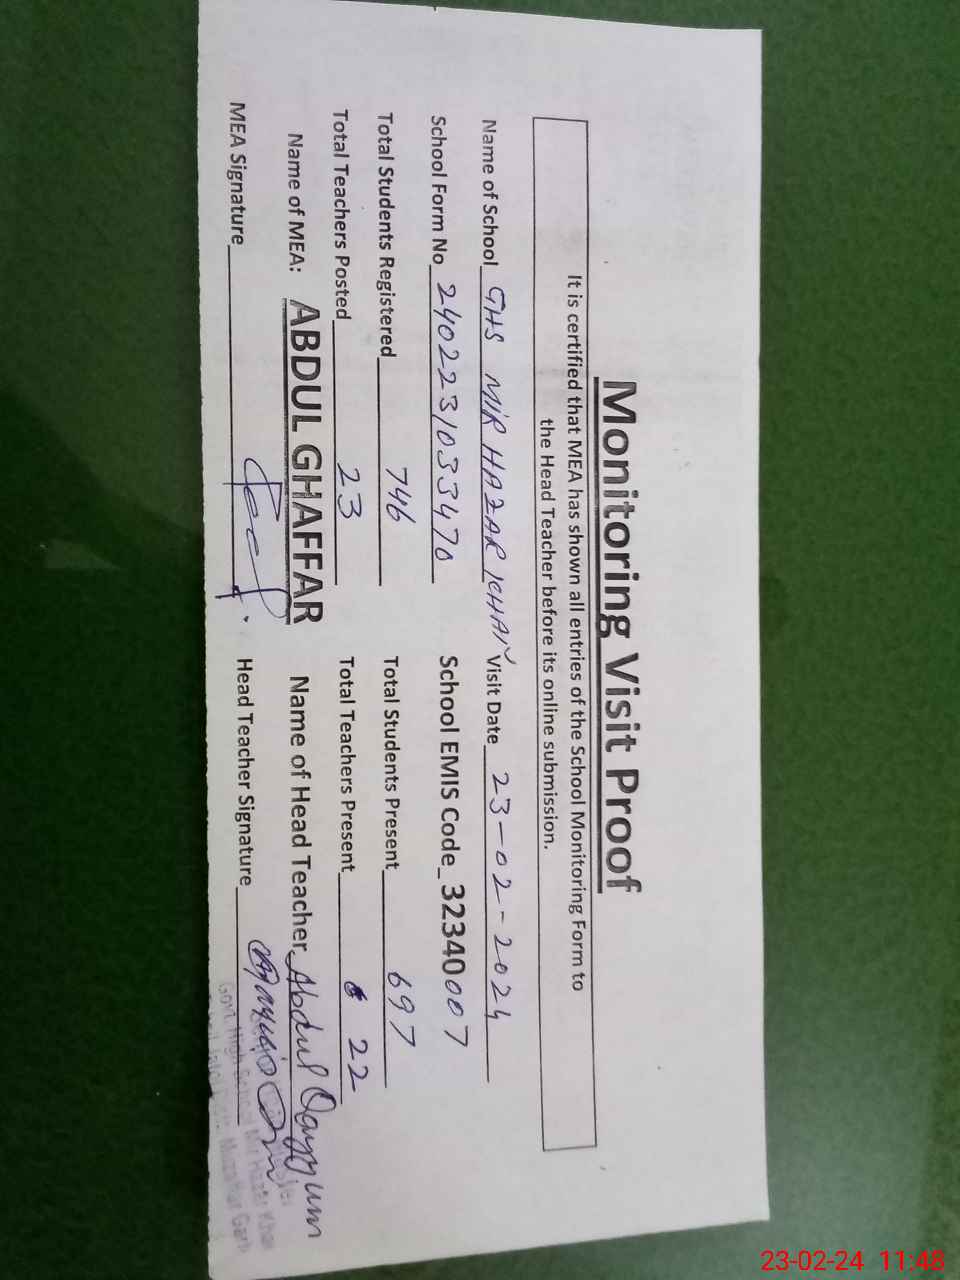 Monitoring Visit Proof
It is certified that MEA has shown all entries of the School Monitoring Form to
the Head Teacher before its online submission.
Name of School GHS MIR HAZAR KHAN Visit Date 23-02-2024
School Form No 2402231033470 School EMIS Code 32340007
Total Students Registered 746 Total Students Present 697
Total Teachers Posted 23 Total Teachers Present 22
Name of MEA: ABDUL GHAFFAR Name of Head Teacher Abdul Qayyum
MEA Signature Head Teacher Signature
Govt. High School Mir Hazar Khan
Muzaffar Garh
23-02-24 11:48